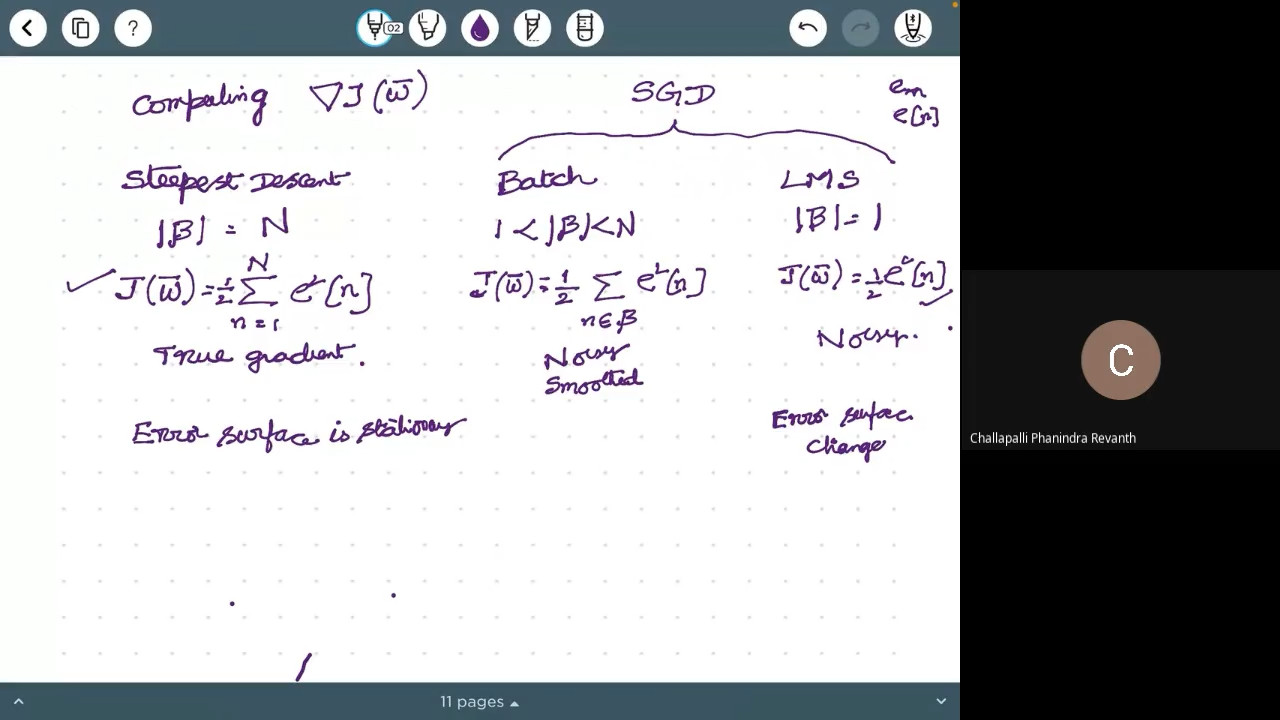 02
Computing ∇J(w̄)
SGD
em
e[n]
Steepest Descent
|B| = N
J(w̄) = 1/2 N∑n=1 e²[n]
True gradient.
Error surface is stationary
Batch
1 < |B| < N
J(w̄) = 1/2 ∑n∈B e²[n]
Noisy
Smoothed
LMS
|B| = 1
J(w̄) = 1/2 e²[n]
Noisy.
Error surface
change
Challapalli Phanindra Revanth
C
11 pages